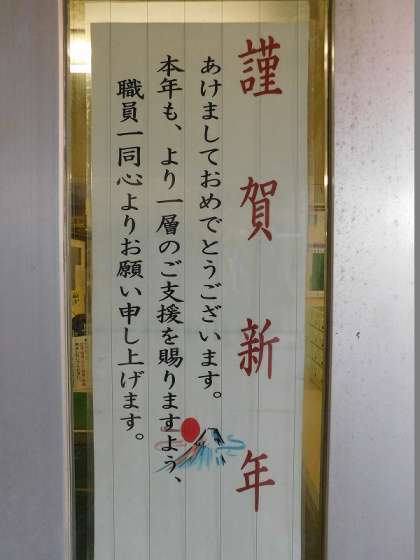 謹賀新年
あけましておめでとうございます。
本年も、より一層のご支援を賜りますよう、
職員一同心よりお願い申し上げます。